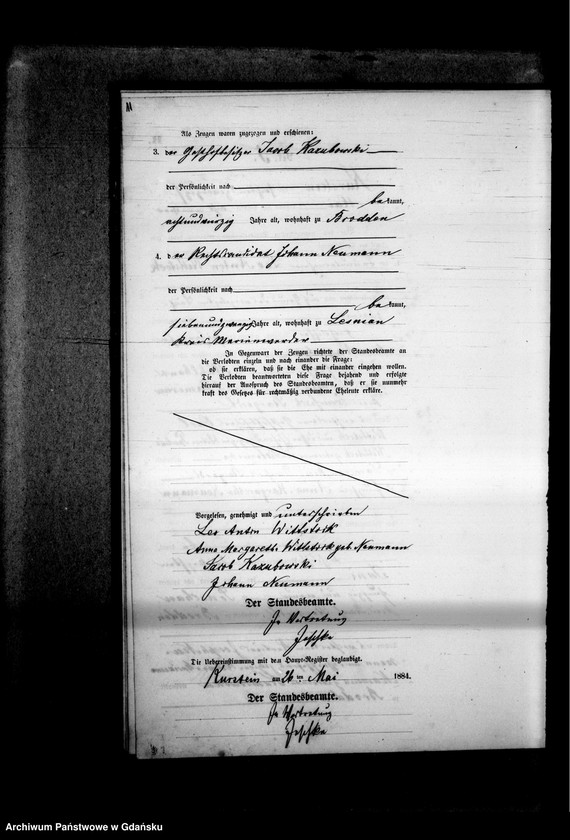 Als Zeugen waren zugezogen und erschienen:
3. der Gasthofbesitzer Jacob Kazubowski
der Persönlichkeit nach
bekannt,
achtundvierzig Jahre alt, wohnhaft zu Brodden
4. der Rechtscandidat Johann Neumann
der Persönlichkeit nach
bekannt,
siebenundzwanzig Jahre alt, wohnhaft zu Lesnian
Kreis Marienwerder
In Gegenwart der Zeugen richtete der Standesbeamte an
die Verlobten einzeln und nach einander die Frage:
ob sie erklären, daß sie die Ehe mit einander eingehen wollen.
Die Verlobten beantworteten diese Frage bejahend und erfolgte
hierauf der Ausspruch des Standesbeamten, daß er sie nunmehr
kraft des Gesetzes für rechtmäßig verbundene Eheleute erkläre.
Vorgelesen, genehmigt und unterschrieben
Leo Anton Wittstock
Anna Margareth Wittstock geb. Neumann
Jacob Kazubowski
Johann Neumann
Der Standesbeamte.
In Vertretung
Jeschke
Die Uebereinstimmung mit dem Haupt-Register beglaubigt.
Kurstein am 26 ten Mai 1884.
Der Standesbeamte.
In Vertretung
Jeschke
Archiwum Państwowe w Gdańsku